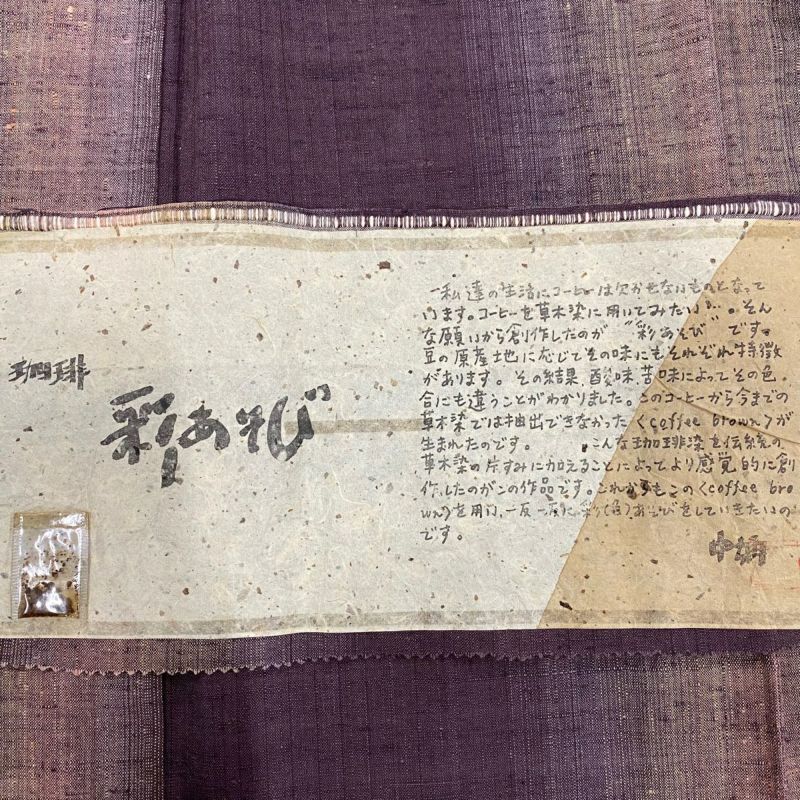 珈琲
彩あそび
私達の生活にコーヒーは欠かせないものとなって
います。コーヒーを草木染に用いてみたい〟。そん
な願いから創作したのが〝彩あそび〟です。
豆の原産地に応じてその味にもそれぞれ特徴
があります。その結果、酸味、苦味によってその色
合にも違うことがわかりました。このコーヒーから今までの
草木染では抽出できなかった〈coffee brown〉が
生まれたのです。 こんな珈琲染を伝統の
草木染の片すみに加えることによってより感覚的に創
作したのがこの作品です。これからもこの〈coffee bro
wn〉を用い、一反一反に彩(色)あそびをしていきたいの
です。